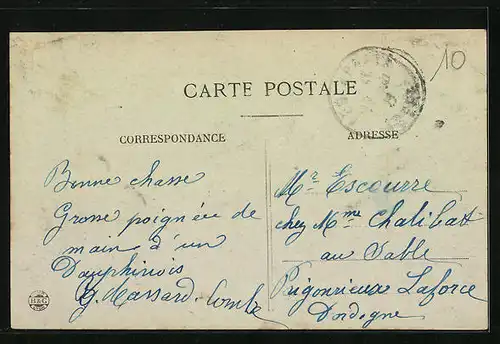 10
CARTE POSTALE
CORRESPONDANCE
ADRESSE
Bonne chasse
Grosse poignée de
main d'un
Dauphinois
G. Massard-Combe
Mr. Escourre
chez Mme Chalibat
au Sable
Prigonrieux Laforce
Dordogne